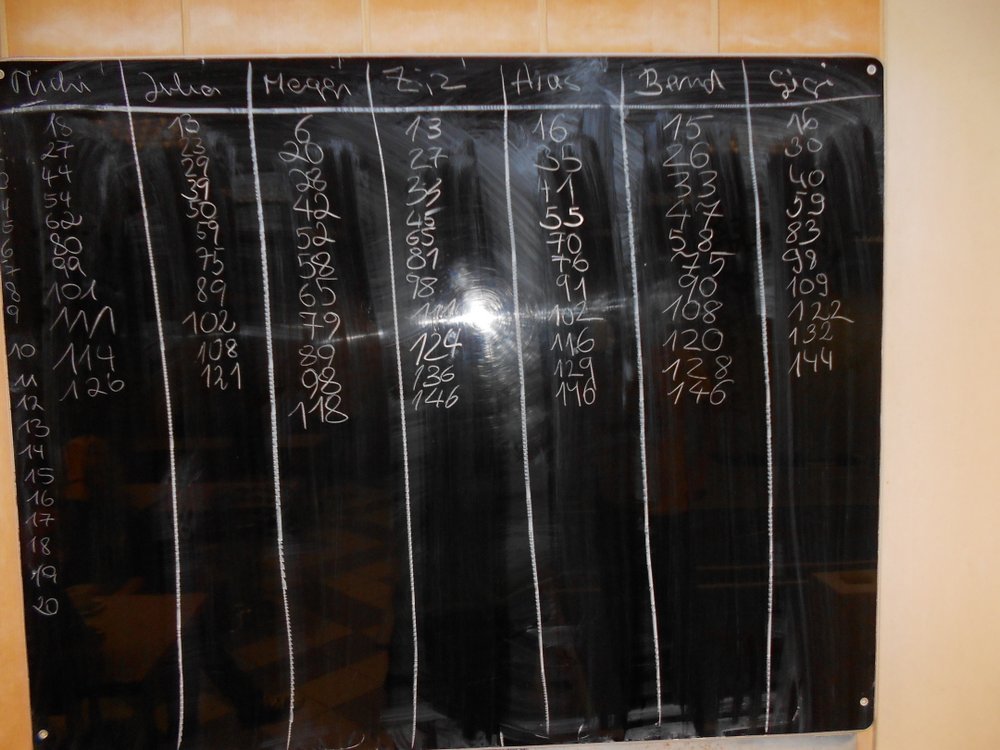 Michi Julia Meggi Ziz Hias Bernd Gigi
18 13 6 13 16 15 16
27 23 20 27 35 26 30
3 44 29 28 35 41 33 40
4 54 39 42 45 55 47 59
5 62 50 52 65 70 58 83
6 80 59 58 81 76 75 98
7 99 75 65 98 91 90 109
8 101 89 79 111 102 108 122
9 111 102 89 124 116 120 132
10 114 108 98 136 129 128 144
11 126 121 118 146 146 146
12
13
14
15
16
17
18
19
20